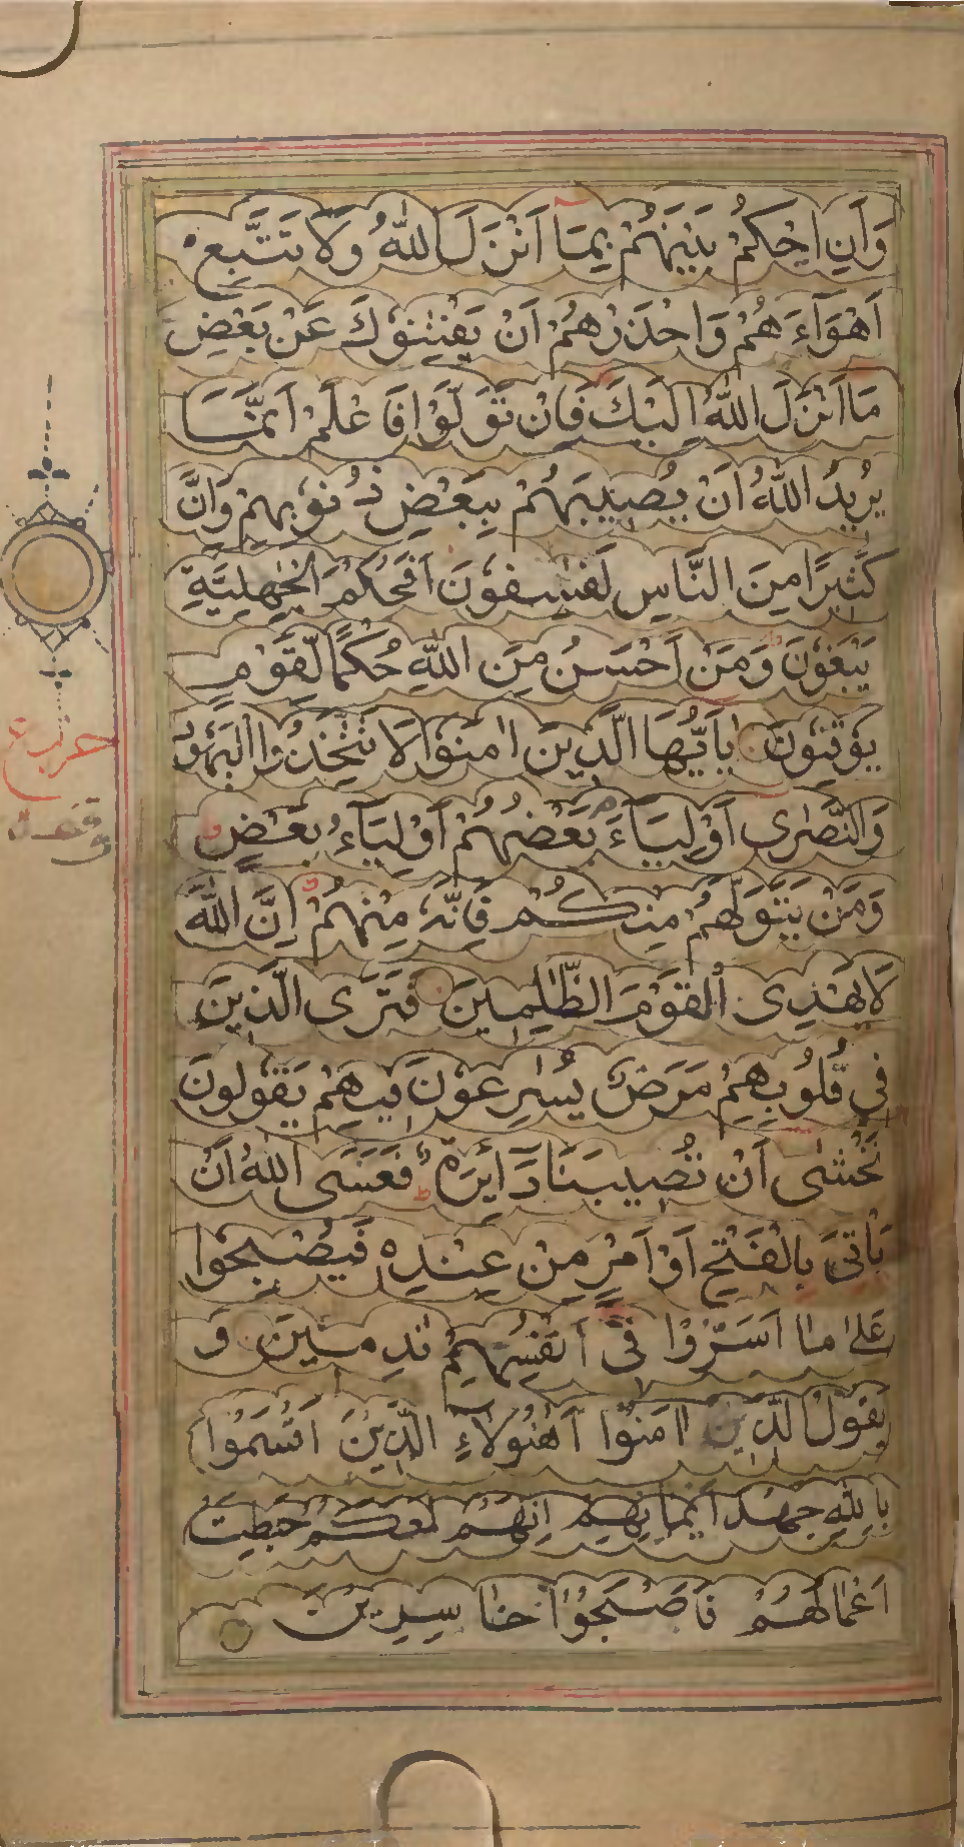 وَاَنِ احْكُمْ بَيْنَهُمْ بِمَا اَنْزَلَ اللّٰهُ وَلَا تَتَّبِعْ
اَهْوَآءَهُمْ وَاحْذَرْهُمْ اَنْ يَفْتِنُوْكَ عَنْ بَعْضِ
مَا اَنْزَلَ اللّٰهُ اِلَيْكَ فَاِنْ تَوَلَّوْا فَاعْلَمْ اَنَّمَا
يُرِيْدُ اللّٰهُ اَنْ يُصِيْبَهُمْ بِبَعْضِ ذُنُوْبِهِمْ وَاِنَّ
كَثِيْرًا مِنَ النَّاسِ لَفٰسِقُوْنَ اَفَحُكْمَ الْجٰهِلِيَّةِ
يَبْغُوْنَ وَمَنْ اَحْسَنُ مِنَ اللّٰهِ حُكْمًا لِّقَوْمٍ
يُوْقِنُوْنَ يٰاَيُّهَا الَّذِيْنَ اٰمَنُوْا لَا تَتَّخِذُوا الْيَهُوْدَ
وَالنَّصٰرٰى اَوْلِيَآءَ بَعْضُهُمْ اَوْلِيَآءُ بَعْضٍ
وَمَنْ يَتَوَلَّهُمْ مِنْكُمْ فَاِنَّهٗ مِنْهُمْ اِنَّ اللّٰهَ
لَا يَهْدِى الْقَوْمَ الظّٰلِمِيْنَ فَتَرَى الَّذِيْنَ
فِى قُلُوْبِهِمْ مَرَضٌ يُسٰرِعُوْنَ فِيْهِمْ يَقُوْلُوْنَ
نَخْشٰى اَنْ تُصِيْبَنَا دَآئِرَةٌ فَعَسَى اللّٰهُ اَنْ
يَأْتِىَ بِالْفَتْحِ اَوْ اَمْرٍ مِنْ عِنْدِهٖ فَيُصْبِحُوْا
عَلٰى مَا اَسَرُّوْا فِىْٓ اَنْفُسِهِمْ نٰدِمِيْنَ وَ
يَقُوْلُ الَّذِيْنَ اٰمَنُوْا اَهٰٓؤُلَاءِ الَّذِيْنَ اَقْسَمُوْا
بِاللّٰهِ جَهْدَ اَيْمَانِهِمْ اِنَّهُمْ لَمَعَكُمْ حَبِطَتْ
اَعْمَالُهُمْ فَاَصْبَحُوْا خَاسِرِيْنَ